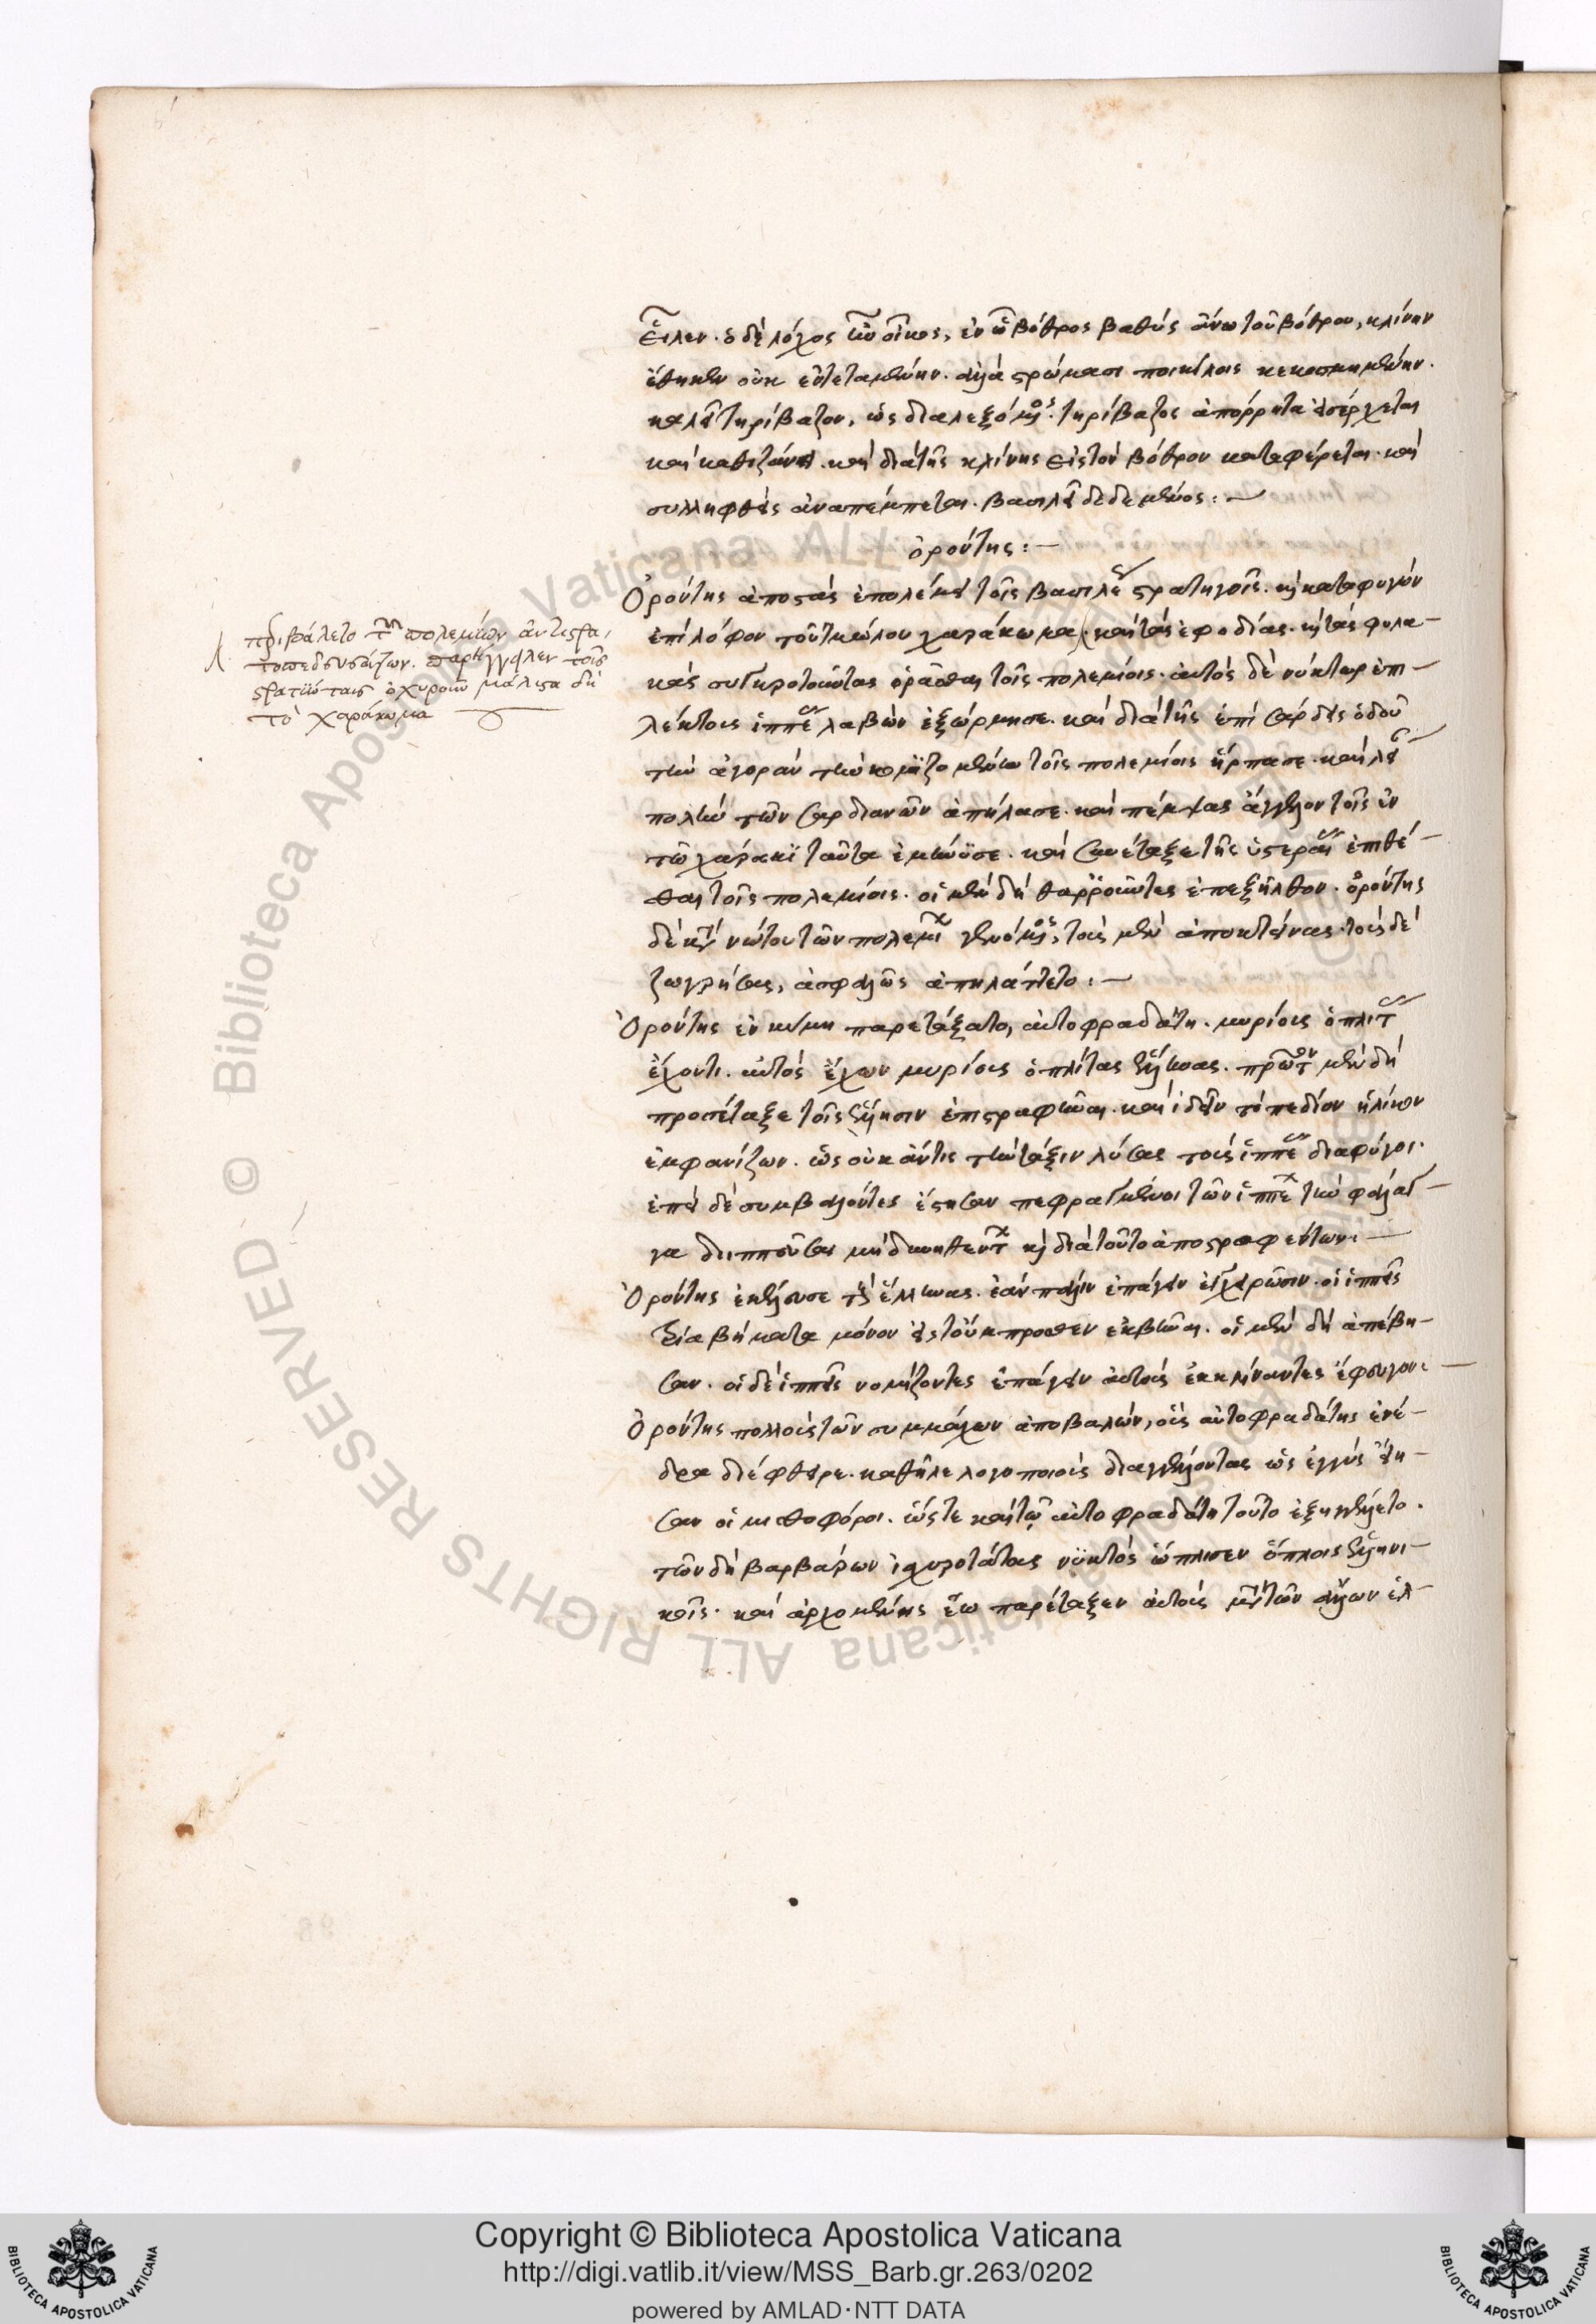 εἷλεν. ὁ δὲ λόχος ἦν οἶκος, ἐν ᾧ βόθρος βαθύς ἄνω τοῦ βόθρου, κλίνην
ἔθηκεν οὐκ ἐντεταμένην. ἀλλὰ στρώμασι ποικίλοις κεκοσμημένην.
καλεῖ τηρίβαζον, ὡς διαλεξόμενος. τηρίβαζος ἀπόρρητα εἰσέρχεται
καὶ καθιζάνει. καὶ διὰ τῆς κλίνης εἰς τὸν βόθρον καταφέρεται. καὶ
συλληφθεὶς ἀναπέμπεται. βασιλεῖ δεδεμένος: —
ὀρόντης: —
Ὀρόντης ἀποστὰς ἐπολέμει τοῖς βασιλέως στρατηγοῖς. καὶ καταφυγὼν
ἐπὶ λόφον τοῦ τμώλου χαράκωμα. καὶ τὰς ἐφοδίας. καὶ τὰς φυλα-
κὰς συγκροτοῦντας ὁρᾶσθαι τοῖς πολεμίοις. αὐτὸς δὲ νύκτωρ ἐπι-
λέκτους ἱππεῖς λαβὼν ἐξώρμησε. καὶ διὰ τῆς ἐπὶ σάρδεις ὁδοῦ
τὴν ἀγορὰν τὴν κομιζομένην τοῖς πολεμίοις ἥρπασε. καὶ λεί
πολλὴν τῶν σαρδιανῶν ἀπήλασε. καὶ πέμψας ἄγγελον τοῖς ἐν
τῷ χάρακι ταῦτα ἐμήνυσε. καὶ συνέταξε τῆς ὑστεραίας ἐπιθέ-
σθαι τοῖς πολεμίοις. οἱ μὲν δὴ θαρροῦντες ἐπεξῆλθον. ὀρόντης
δὲ κατὰ νώτου τῶν πολεμίων γενόμενος, τοὺς μὲν ἀποκτείνας. τοὺς δὲ
ζωγρήσας, ἀσφαλῶς ἀπηλάττετο: —
Ὀρόντης ἐν κύμη παρετάξατο, αὐτοφραδάτη. μυρίους ὁπλίτας
ἔχοντι. αὐτὸς ἔχων μυρίους ὁπλίτας ἕλληνας. πρῶτον μὲν δὴ
προσέταξε τοῖς ἕλλησιν ἐπιστραφῆναι. καὶ ἰδεῖν τὸ πεδίον ἡλίκον
ἐμφανίζων. ὡς οὐκ ἄν τις τὴν τάξιν λύσας τοὺς ἱππέας διαφύγοι.
ἐπεὶ δὲ συμβαλόντες ἔστησαν πεφραγμένοι τῶν ἱππέων τὴν φάλαγ-
γα διιππεῦσαι μὴ δυνηθέντων καὶ διὰ τοῦτο ἀποστραφέντων: —
Ὀρόντης ἐκέλευσε τοὺς ἕλληνας. ἐὰν πάλιν ἐπάγειν ἐγχειρῶσιν. οἱ ἱππεῖς
τρία βήματα μόνον εἰς τοὔμπροσθεν ἐκβῆναι. οἱ μὲν δὴ ἀπέβη-
σαν. οἱ δὲ ἱππεῖς νομίζοντες ἐπάγειν αὐτοὺς ἐκκλίναντες ἔφευγον: —
Ὀρόντης πολλοὺς τῶν συμμάχων ἀποβαλών, οὓς αὐτοφραδάτης ἐνέ-
δρα διέφθειρε. καθῆκε λογοποιοὺς διαγγέλοντας ὡς ἐγγὺς εἴη-
σαν οἱ μισθοφόροι. ὥστε καὶ τῷ αὐτοφραδάτη τοῦτο ἐξηγγέλετο.
τῶν δὴ βαρβάρων ἰσχυροτάτους νυκτὸς ὥπλισεν ὅπλοις ἑλληνι-
κοῖς. καὶ ἀρχομένης ἕω παρέταξεν αὐτοὺς μετὰ τῶν ἄλλων ἑλ-
περιβάλετο τῶν πολεμίων ἀντιστρα,
τοπεδευσάντων. παρήγγειλεν τοῖς
στρατιώταις ὀχυροῦν μάλιστα δὴ
τὸ χαράκωμα
Copyright © Biblioteca Apostolica Vaticana
http://digi.vatlib.it/view/MSS_Barb.gr.263/0202
powered by AMLAD·NTT DATA
BIBLIOTECA APOSTOLICA VATICANA
BIBLIOTECA APOSTOLICA VATICANA